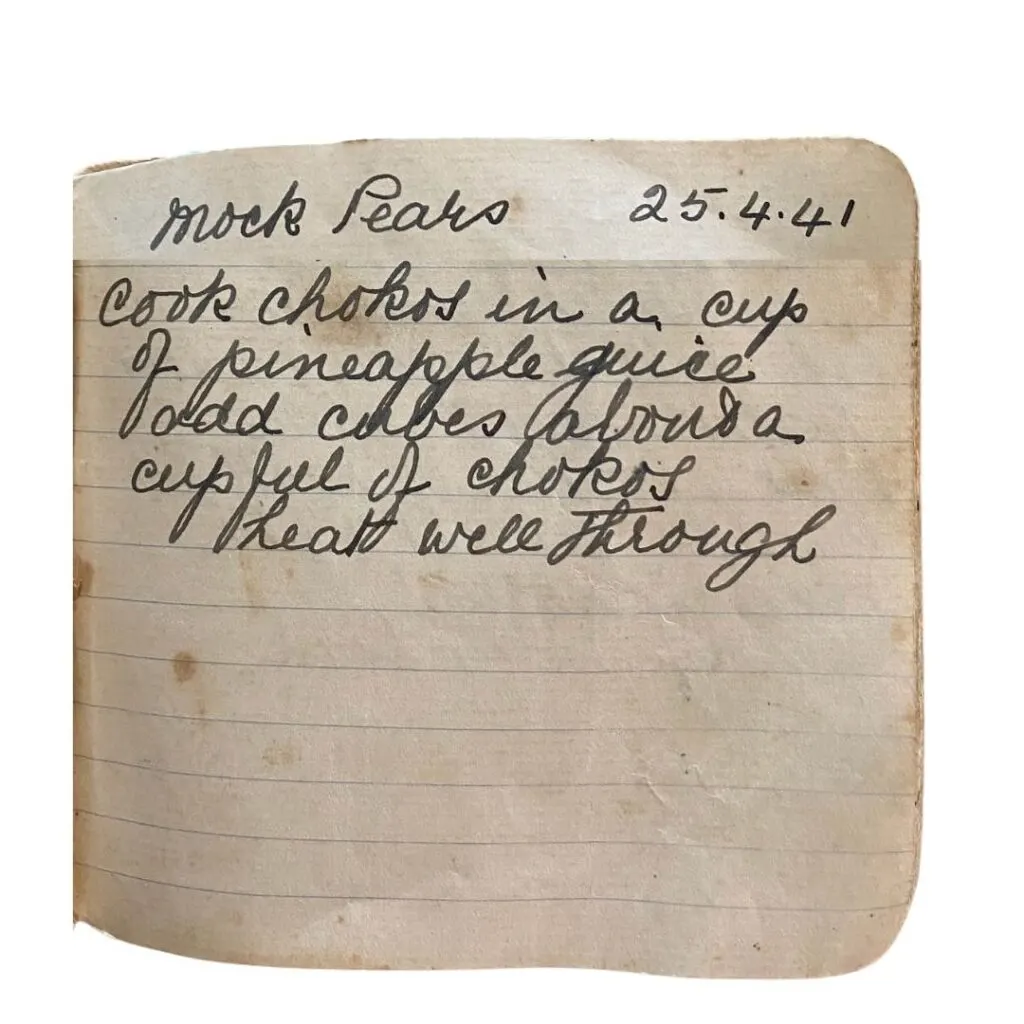 Mock Pears 25.4.41
cook chokos in a cup
of pineapple quice
add cubes about a
cupful of chokos
heat well through